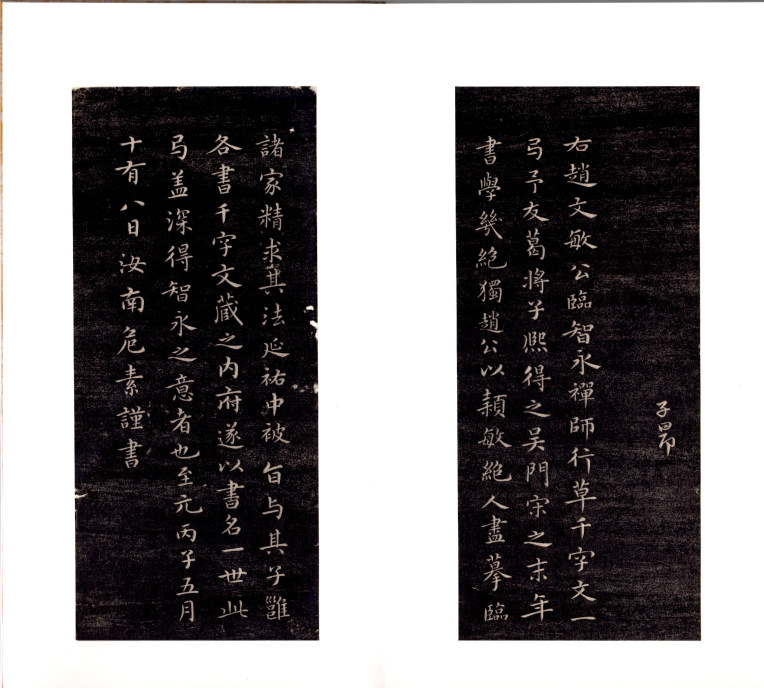 子昂
右趙文敏公臨智永禪師行草千字文一
弓予友葛將子熈得之吴門宋之末年
書學幾絶獨趙公以穎敏絶人盡摹臨
諸家精求其法延祐中被旨与其子雝
各書千字文藏之内府遂以書名一世此
弓盖深得智永之意者也至元丙子五月
十有八日汝南危素謹書